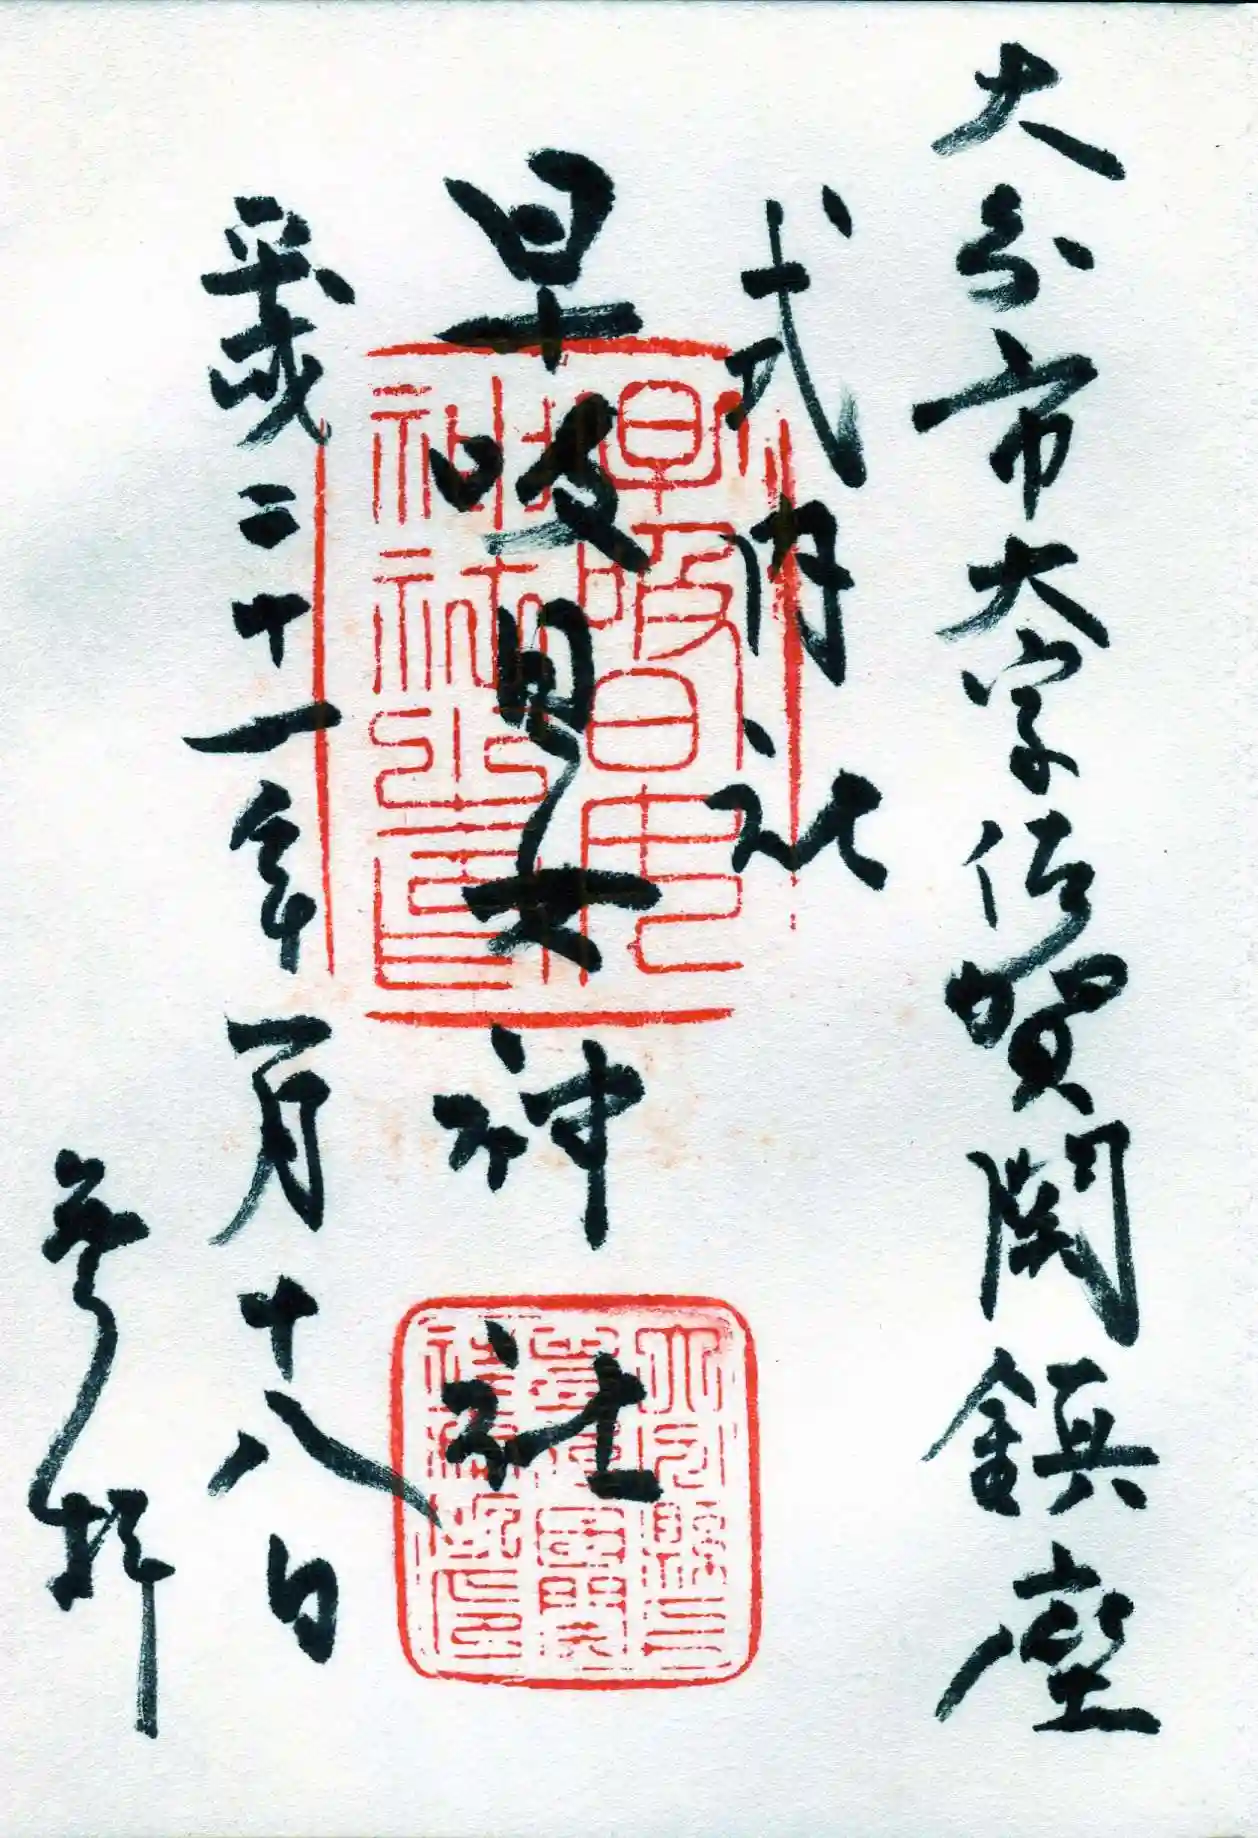 大分市大字佐賀関鎮座
式内社
早吸日女神社
平成三十一年一月十八日
参拝
早吸日女
神社之印